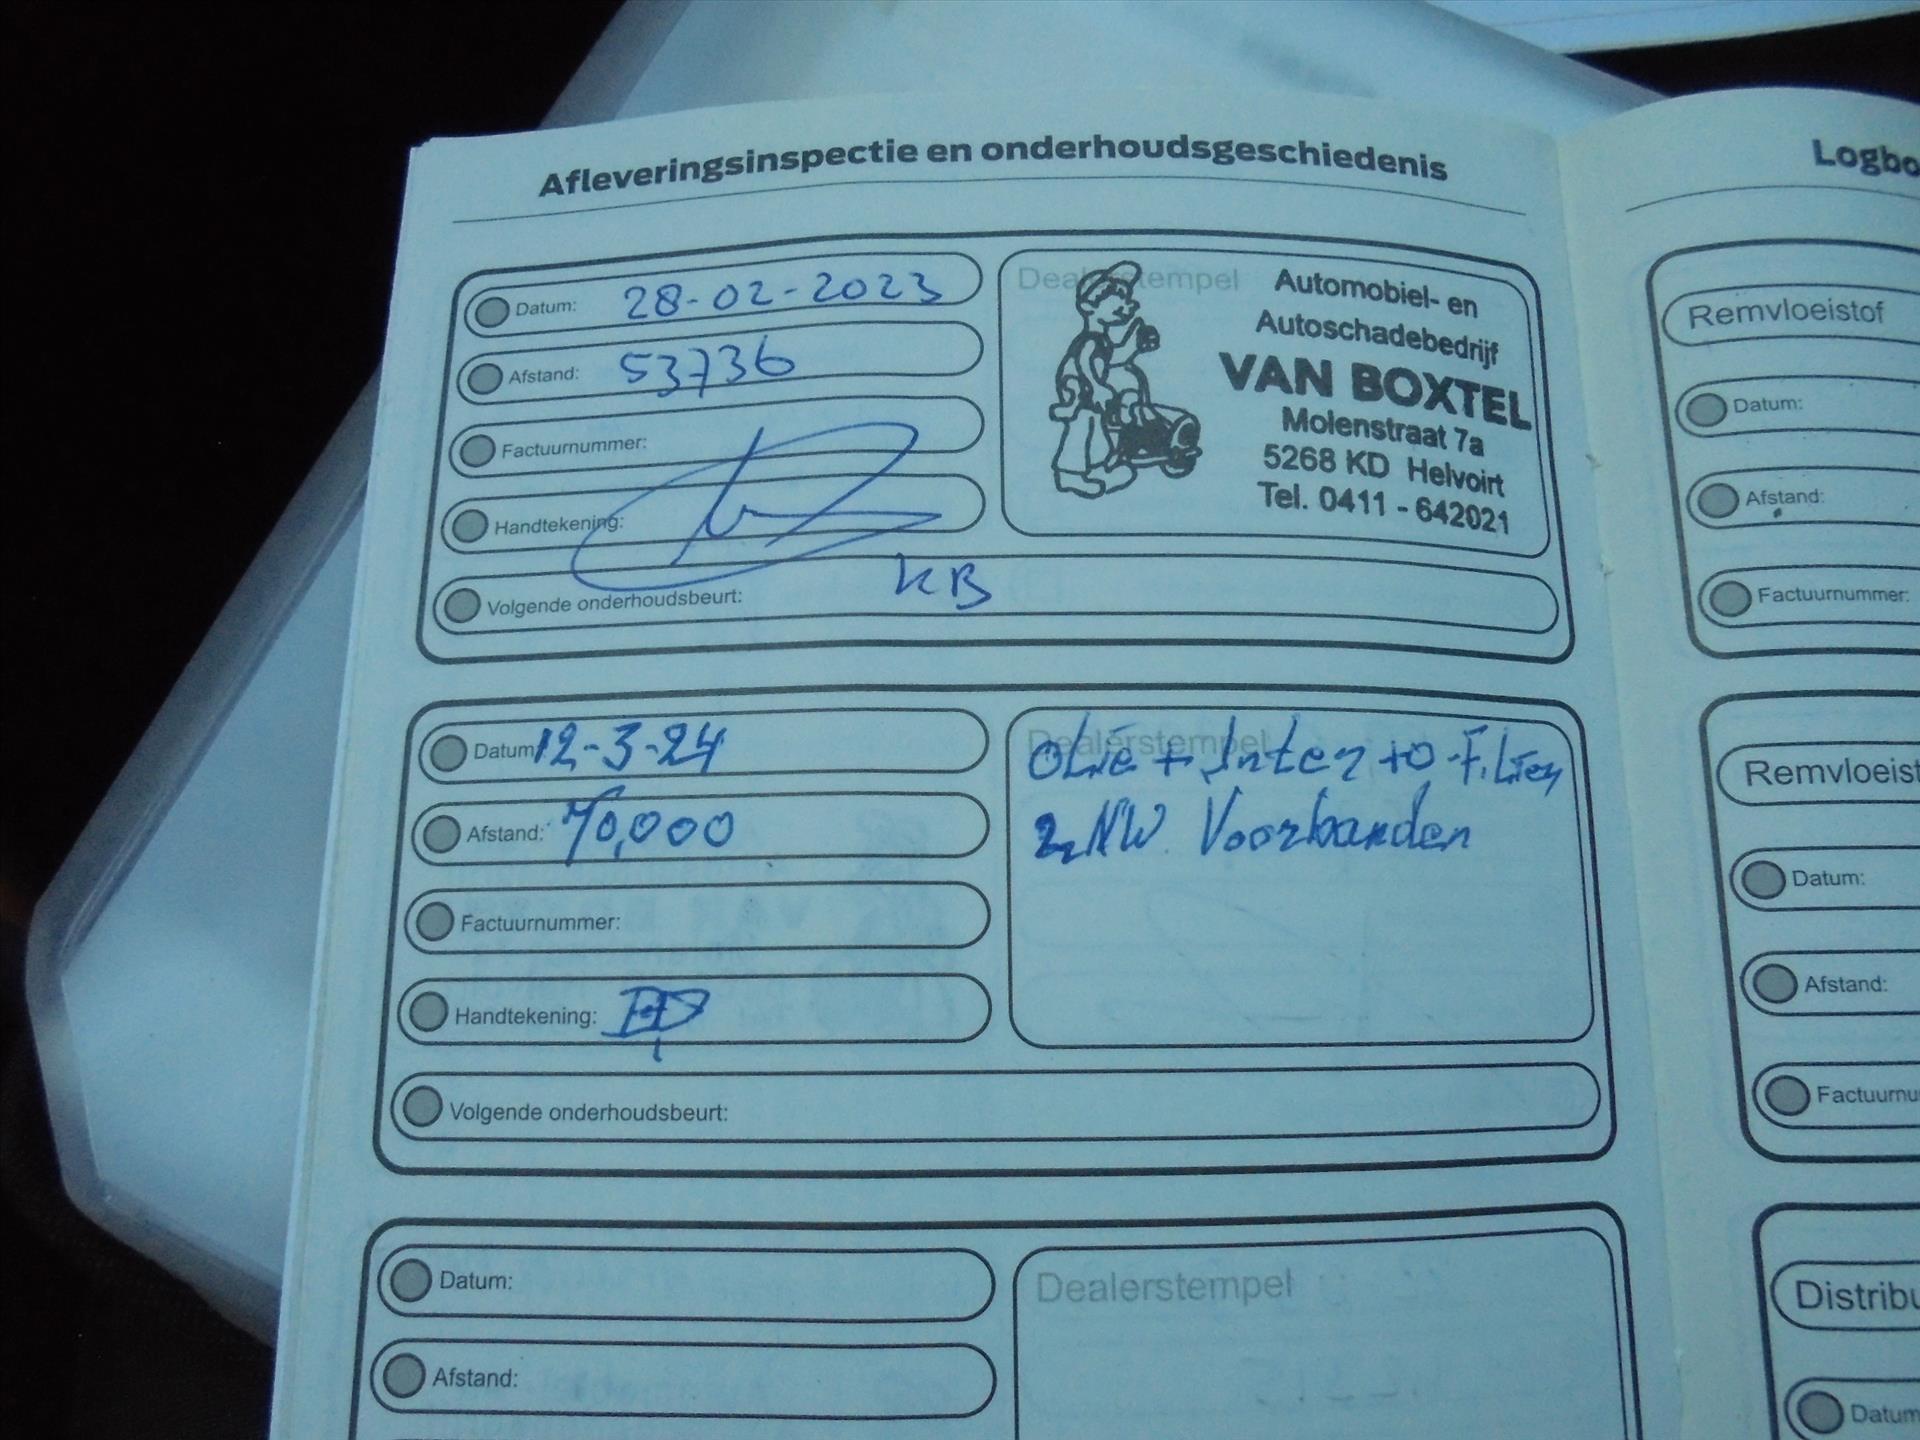 Afleveringsinspectie en onderhoudsgeschiedenis
Datum: 28-02-2023
Afstand: 53736
Factuurnummer:
Handtekening:
KB
Volgende onderhoudsbeurt:
Dealerstempel
Automobiel- en
Autoschadebedrijf
VAN BOXTEL
Molenstraat 7a
5268 KD Helvoirt
Tel. 0411 - 642021
Datum: 12-3-24
Afstand: 70,000
Factuurnummer:
Handtekening:
Volgende onderhoudsbeurt:
Dealerstempel
Olie + Inter + O-
2 NW Voorbanden
Datum:
Afstand:
Dealerstempel
Logbo
Remvloeistof
Datum:
Afstand:
Factuurnummer:
Remvloeist
Datum:
Afstand:
Factuurnu
Distribu
Datum